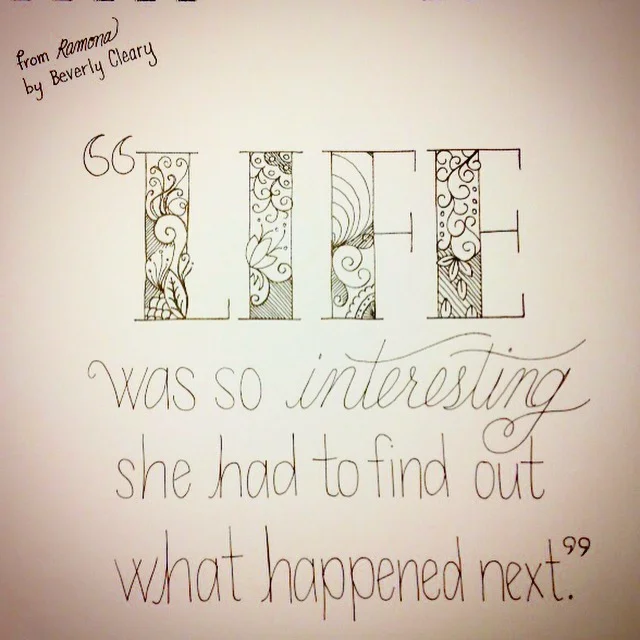 from Ramona
by Beverly Cleary
“LIFE
was so interesting
she had to find out
what happened next.”